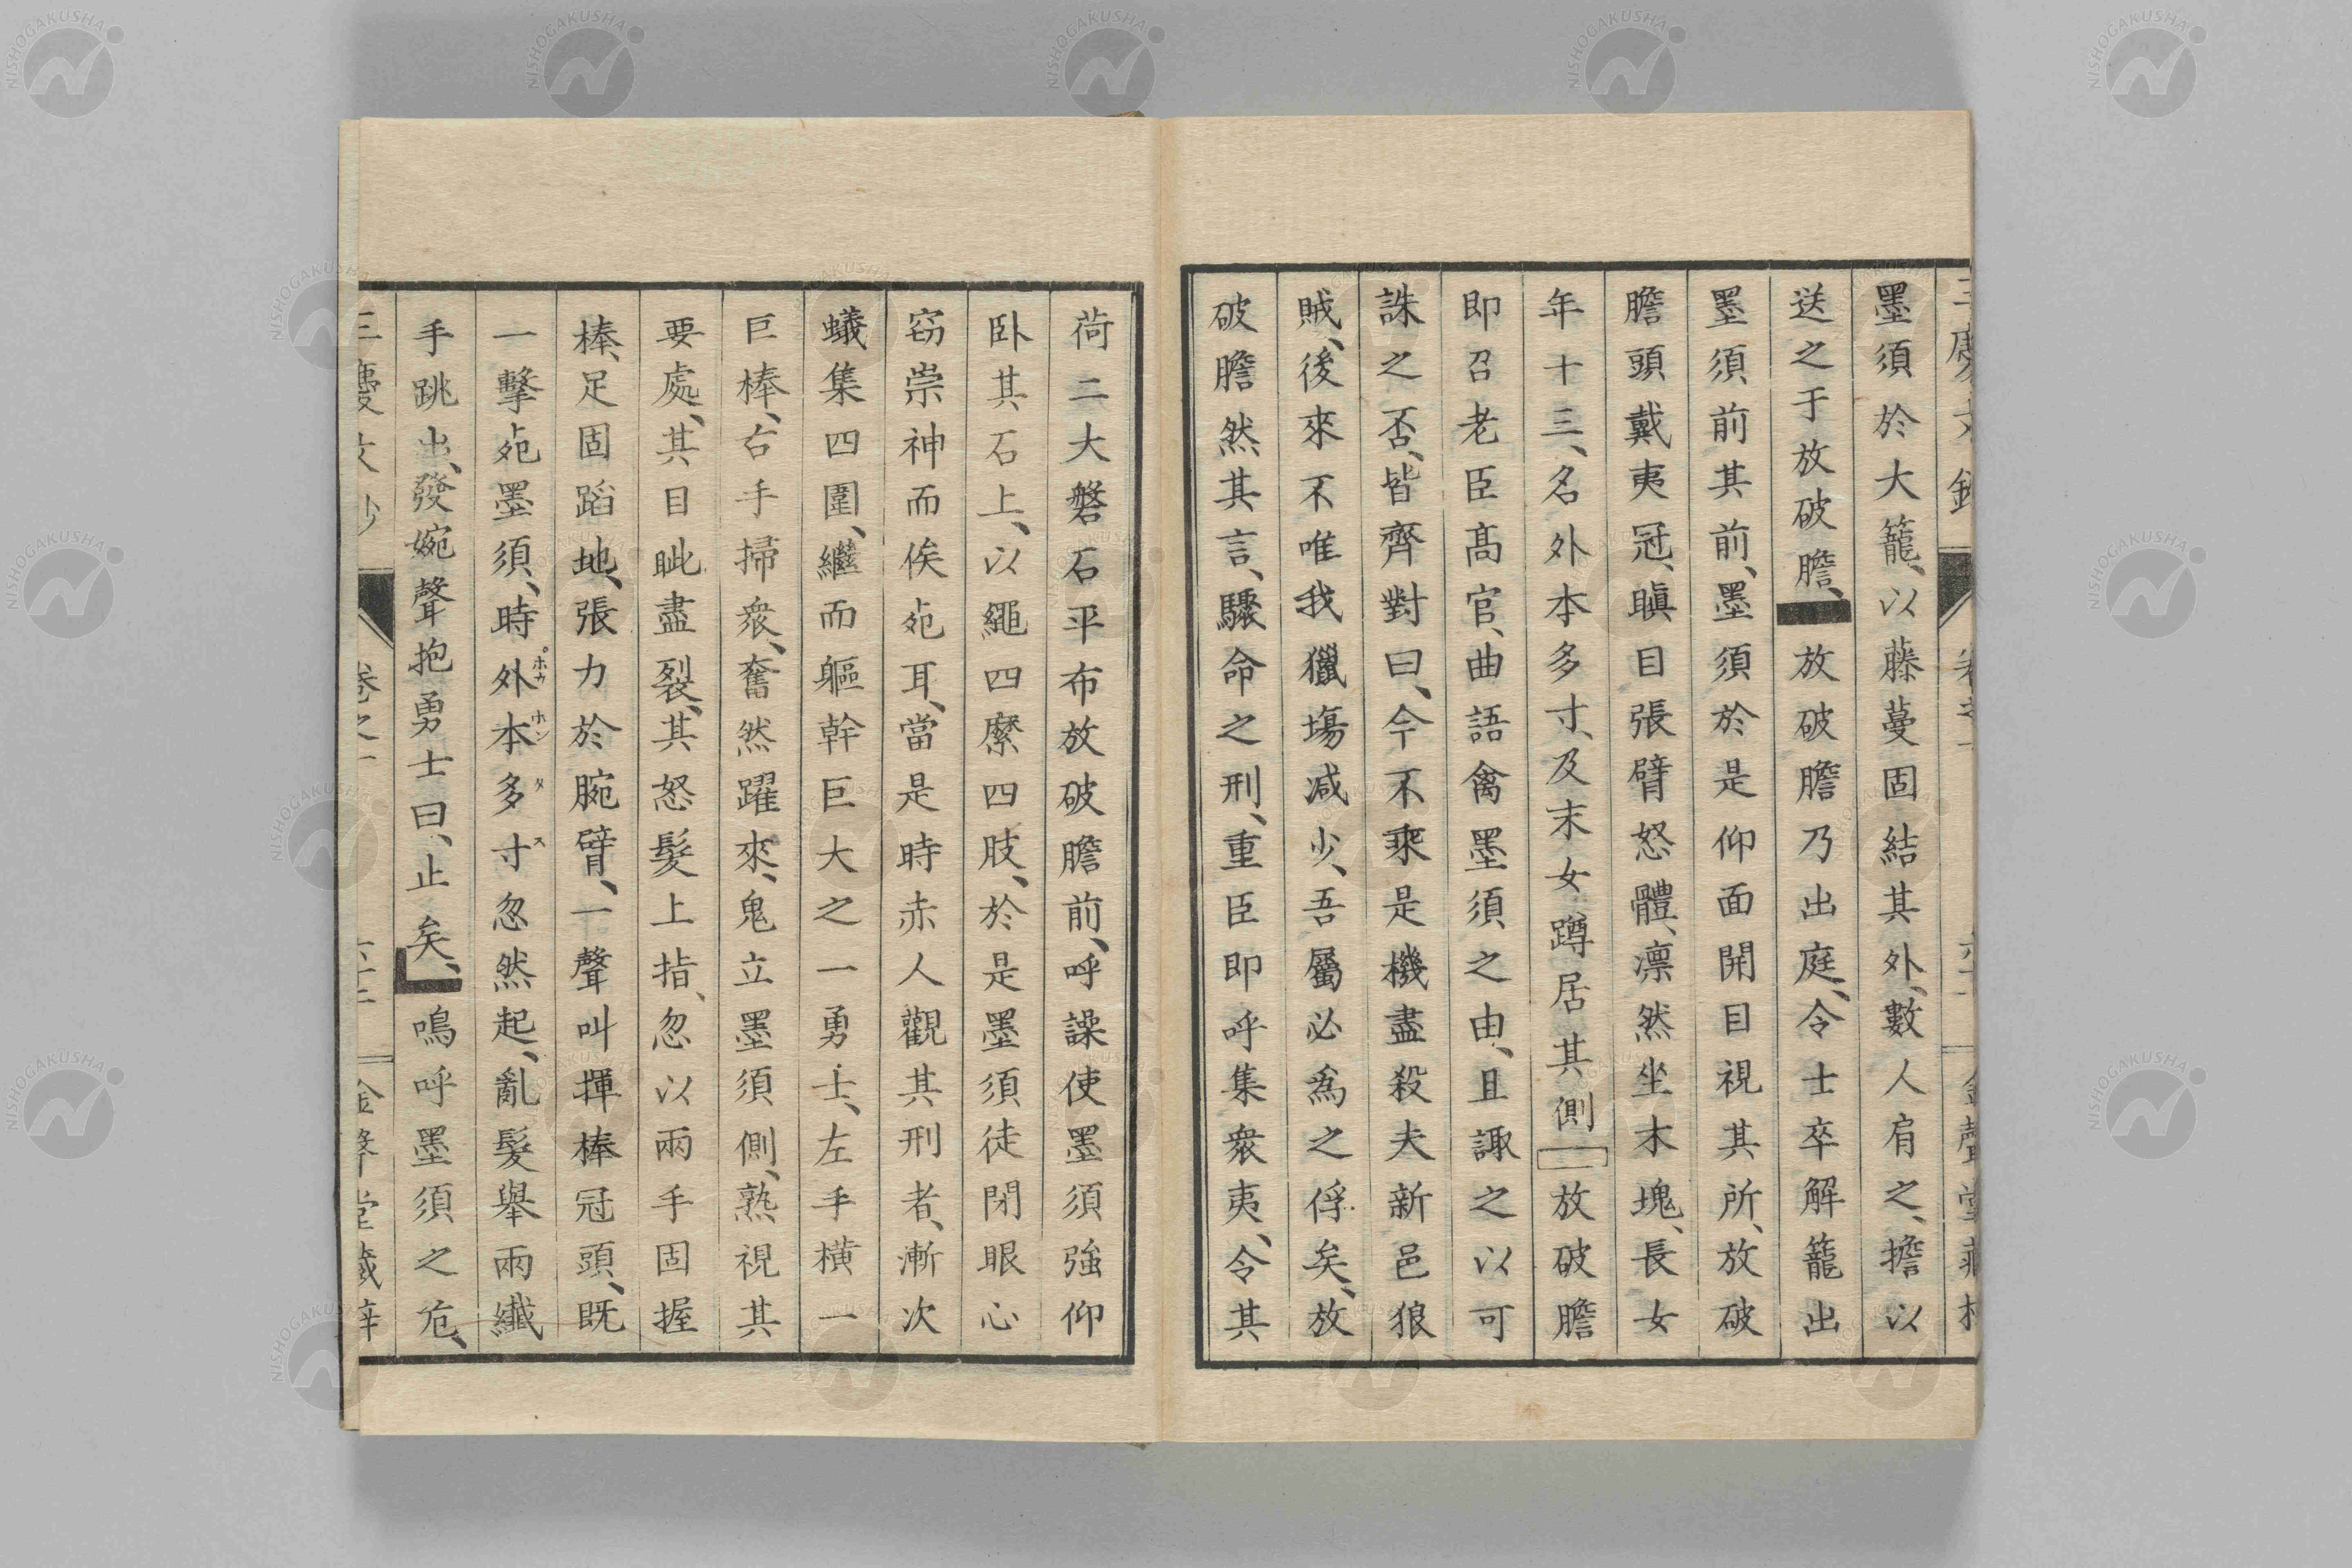 墨須於大籠、以藤蔓固結其外、數人肩之、擔以
送之于放破膽、放破膽乃出庭、令士卒解籠出
墨須前其前、墨須於是仰面開目視其所、放破
膽頭戴夷冠、瞋目張臂怒體、凛然坐木塊、長女
年十三、名外本多寸、及末女蹲居其側放破膽
即召老臣髙官、曲語禽墨須之由、且諏之以可
誅之否、皆齊對曰、今不乘是機盡殺夫新邑狼
賊、後來不唯我獵塲减少、吾屬必為之俘矣、放
破膽然其言、驟命之刑、重臣即呼集衆夷、令其
荷二大磐石平布放破膽前、呼譟使墨須強仰
卧其石上、以繩四縻四肢、於是墨須徒閉眼心
窃祟神而俟死耳、當是時赤人觀其刑者、漸次
蟻集四圍、繼而軀幹巨大之一勇士、左手橫一
巨棒、右手掃衆、奮然躍來、鬼立墨須側、熟視其
要處、其目眦盡裂、其怒髮上指、忽以兩手固握
棒、足固蹈地、張力於腕臂、一聲叫揮棒冠頭、既
一擊死墨須、時外本多寸忽然起、亂髮舉兩纎
ホウ ホン タ ス
手跳出、發婉聲抱勇士曰、止矣、嗚呼墨須之危、
卷之一
金聲堂藏梓
NISHOGAKUSHA